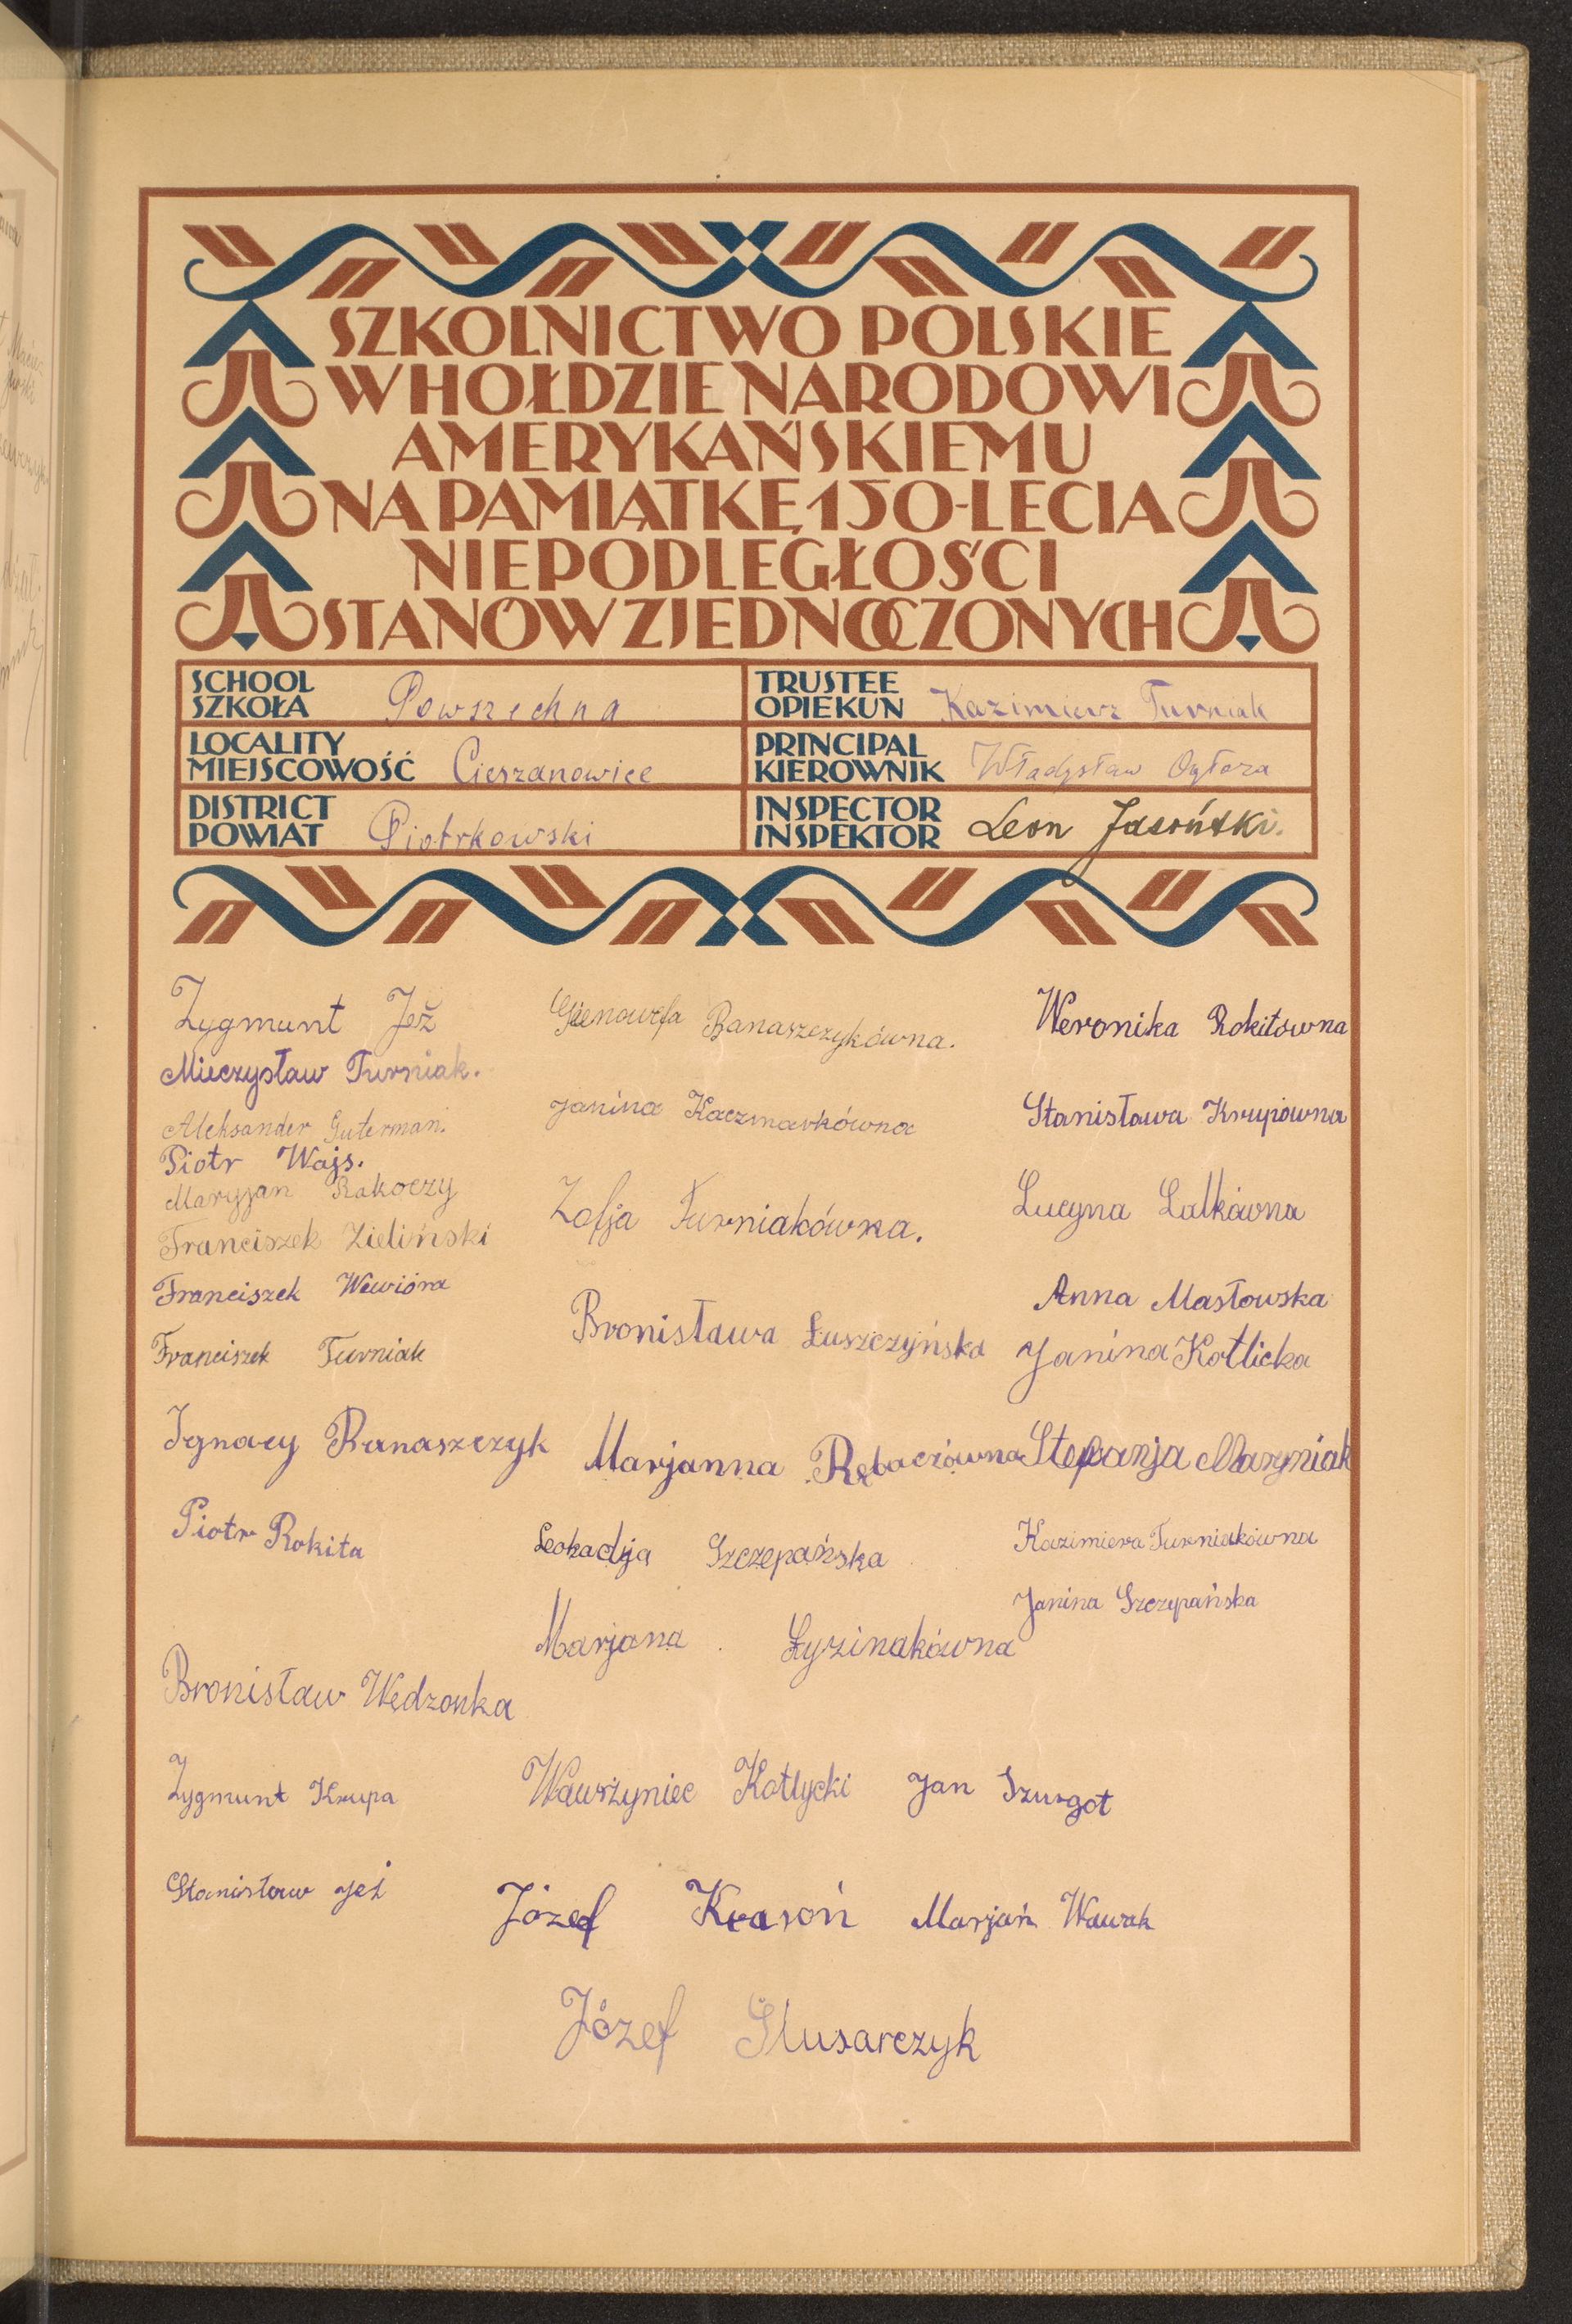 SZKOLNICTWO POLSKIE
W HOŁDZIE NARODOWI
AMERYKAŃSKIEMU
NA PAMIĄTKĘ 150-LECIA
NIEPODLEGŁOŚCI
STANÓW ZJEDNOCZONYCH
SCHOOL
SZKOŁA Powszechna
TRUSTEE
OPIEKUN Kazimierz Turniak
LOCALITY
MIEJSCOWOŚĆ Cieszanowice
PRINCIPAL
KIEROWNIK Władysław
DISTRICT
POWIAT Piotrkowski
INSPECTOR
INSPEKTOR Leon Jasoński.
Zygmunt Jeż
Mieczysław Turniak.
Aleksander Guterman.
Piotr Wajs.
Maryjan Rakoczy
Franciszek Zieliński
Franciszek Wewióra
Franciszek Turniak
Ignacy Banaszczyk
Piotr Rokita
Bronisław Wędzonka
Zygmunt Krupa
Stanisław Jeż
Gienowefa Banaszczykówna.
Janina Kaczmarkówna
Zofja Turniakówna.
Bronisława Łuszczyńska
Marjanna Rębaczówna
Leokadja Szczepańska
Marjana Łyzinakówna
Wawrzyniec Kotlycki
Józef Krasoń
Józef Slusarczyk
Weronika Rokitówna
Stanisława Krupówna
Lucyna Lalkówna
Anna Masłowska
Janina Kotlicka
Stefanja Maryniak
Kazimiera Turniakówna
Janina Szczepańska
Jan Szurgot
Marjań Wawrak